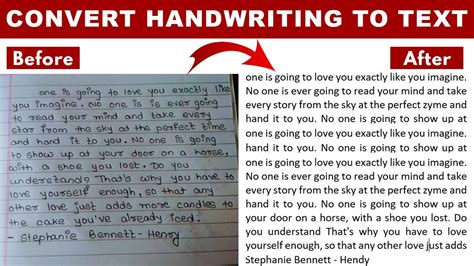 CONVERT HANDWRITING TO TEXT
Before
After
one is going to love you exactly like
you imagine. No one is is ever going
to read your mind and take every
star from the sky at the perfect time
and hand it to you. No one is going
to show up at your door on a horse,
with a shoe you lost. Do you
understand? That's why you have to
love yourself enough, so that any
other love just adds more candles to
the cake you've already iced.
- Stephanie Bennett-Henry
one is going to love you exactly like you imagine.
No one is ever going to read your mind and take
every story from the sky at the perfect zyme and
hand it to you. No one is going to show up at
one is going to love you exactly like you imagine.
No one is ever going to read your mind and take
every story from the sky at the perfect zyme and
hand it to you. No one is going to show up at
one is going to love you exactly like you imagine.
No one is ever going to read your mind and take
every story from the sky at the perfect zyme and
hand it to you. No one is going to show up at
your door on a horse, with a shoe you lost. Do
you understand That's why you have to love
yourself enough, so that any other love just adds
Stephanie Bennett - Hendy